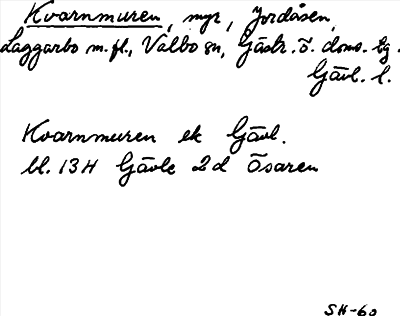 Kvarnmuren, myr, Jordåsen,
Laggarbo m.fl., Valbo sn, Gästr. ö. doms. tg.
Gävl. l.
Kvarnmuren ek Gävl.
bl. 13H Gävle 2d Ösaren
SH-60